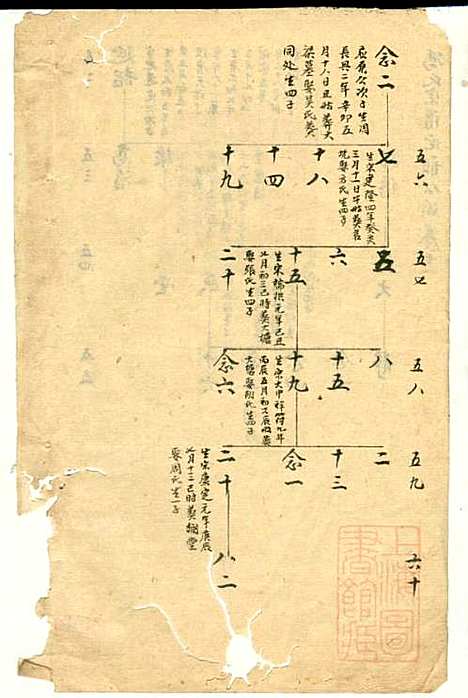 五六
五七
五八
五九
六十
念二
辰葉公次子生周
長興二年辛卯五
月十八日丑時葬大
梁墓娶吳氏葬
同处生四子
七
生宋建隆四年癸亥
三月十一日午時葬官
坑娶方氏生四子
十八
十四
十九
五
六
十五
生宋端拱元年己丑
七月初三巳時葬大塘
娶張氏生四子
二十
八
十五
十九
生宋大中祥符九年
丙辰五月初七辰時葬
大塘娶阴氏生四子
念六
二
十三
念一
二十
生宋康定元年庚辰
七月十二巳時葬
娶周氏生一子
八二
上海圖
書館藏